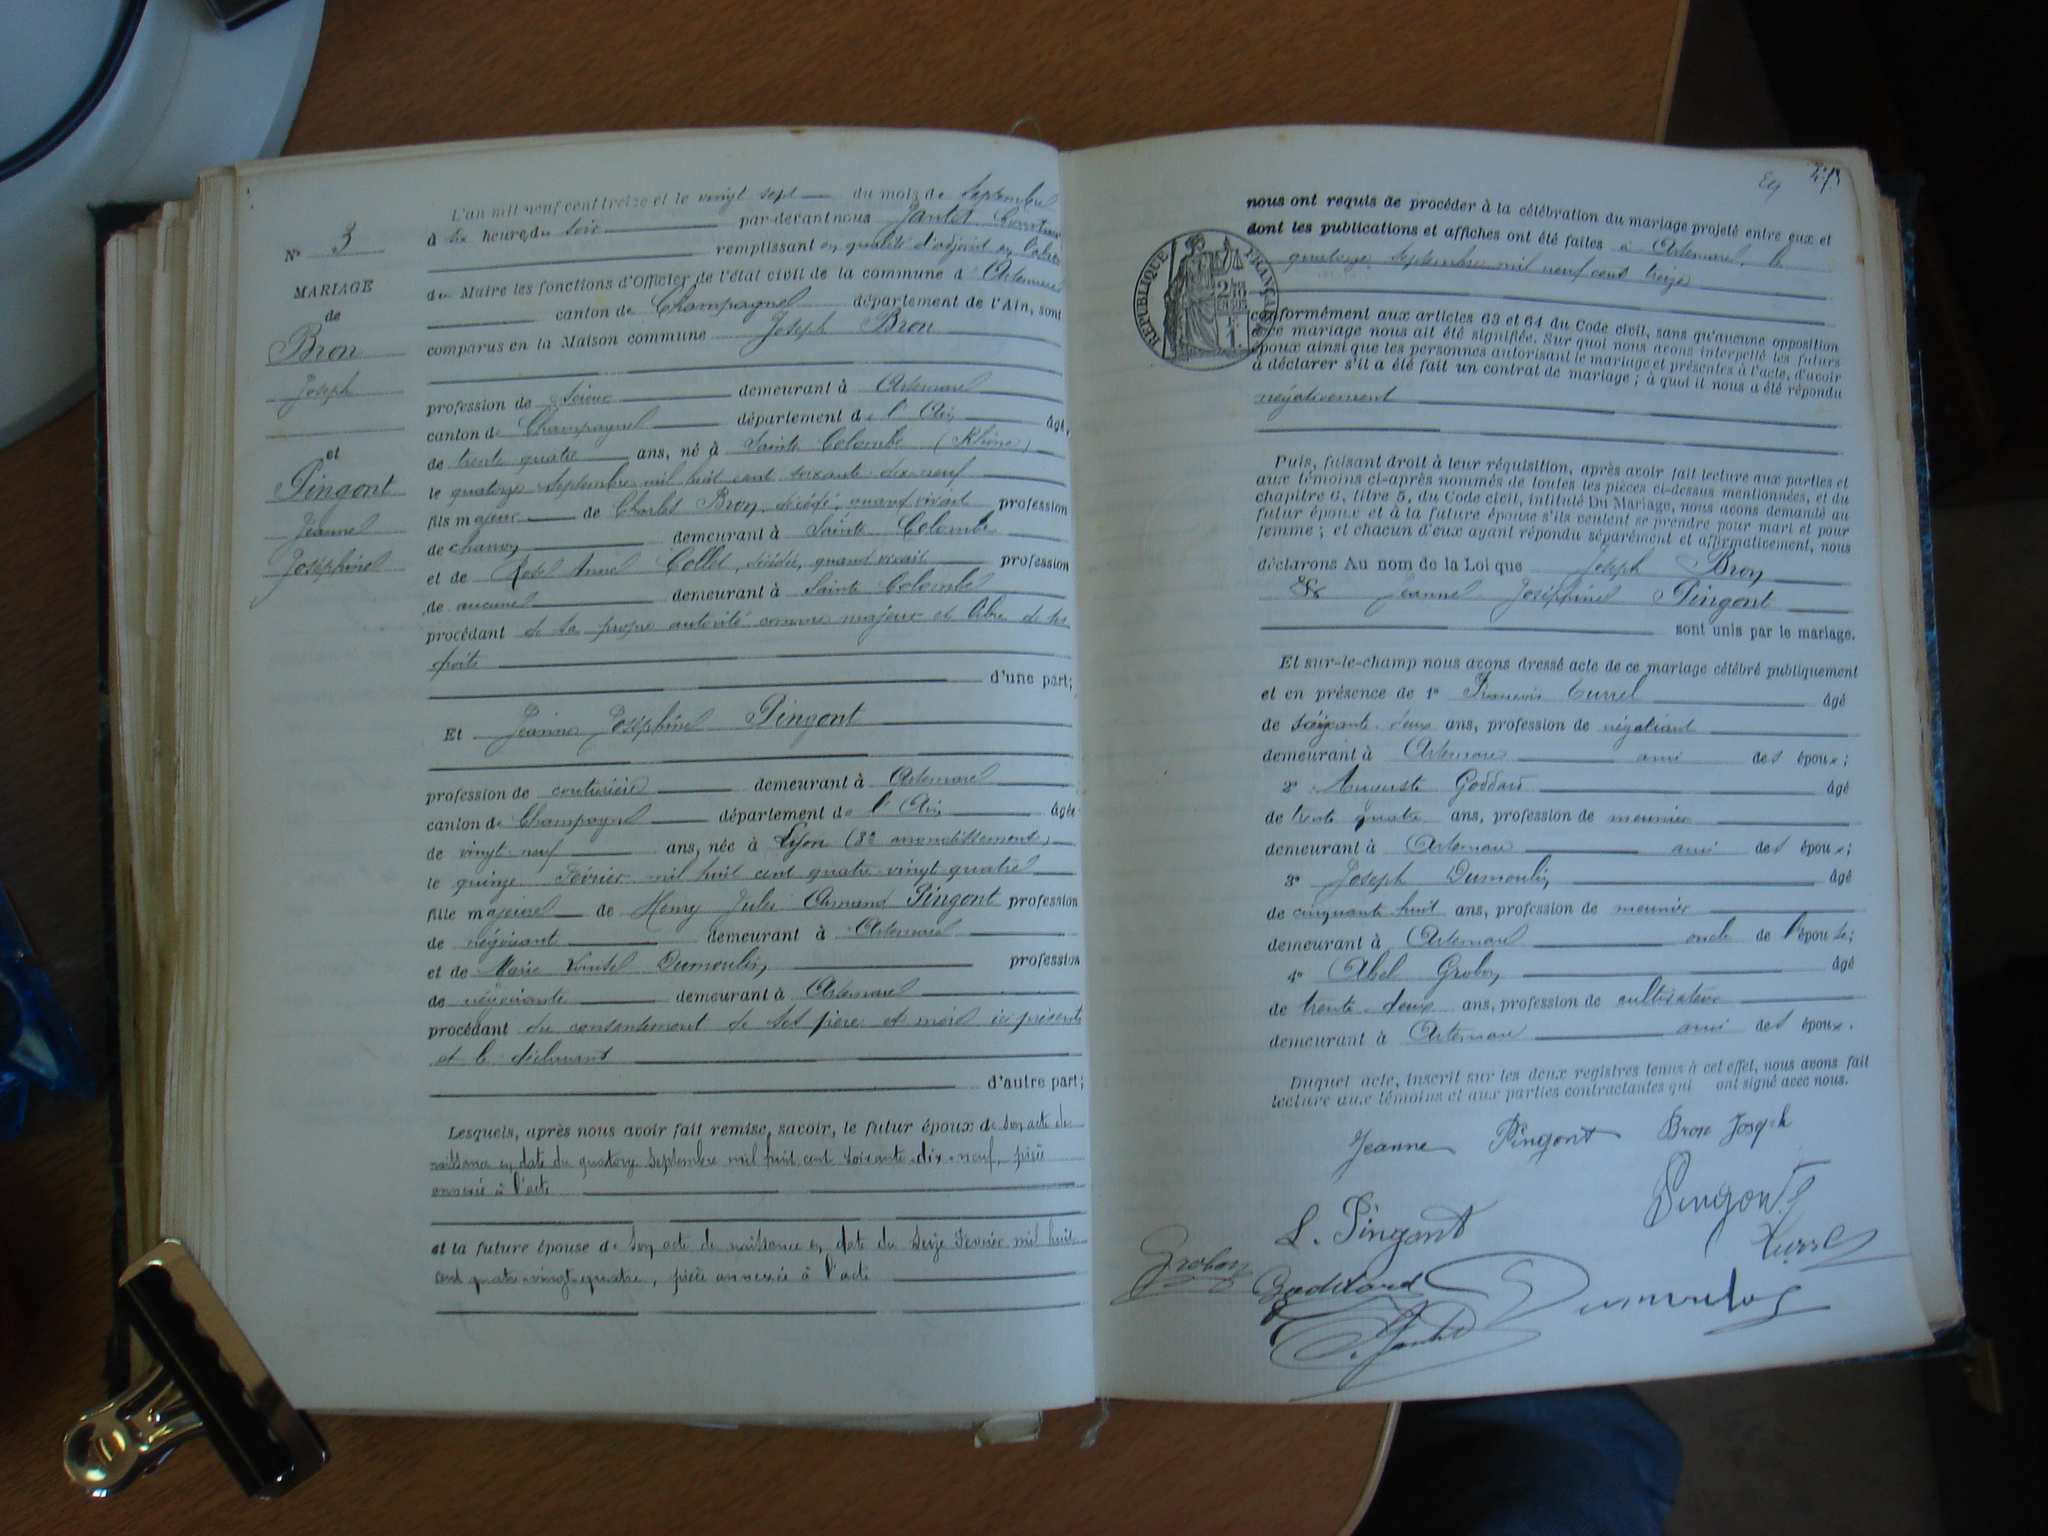 N° 3
MARIAGE
de
Bron
Joseph
et
Pingont
Jeanne
Joséphine
L'an mil neuf cent treize et le vingt sept du mois de Septembre
à six heures du soir par-devant nous Jantet
remplissant en qualité d'adjoint en
du Maire les fonctions d'Officier de l'état civil de la commune d'Artemare
canton de Champagne département de l'Ain, sont
comparus en la Maison commune Joseph Bron
profession de scieur demeurant à Artemare
canton de Champagne département de l'Ain âgé,
de trente quatre ans, né à Sainte Colombe (Rhône)
le quatorze Septembre mil huit cent soixante-dix-neuf
fils majeur de Charles Bron, décédé, quand vivait profession
de charron demeurant à Sainte Colombe
et de Rose Anne Collet, décédée, quand vivait profession
de aucune demeurant à Sainte Colombe
procédant de sa propre autorité comme majeur et libre de ses
droits
d'une part;
Et Jeanne Joséphine Pingont
profession de couturière demeurant à Artemare
canton de Champagne département de l'Ain âgée
de vingt-neuf ans, née à Lyon (3e arrondissement)
le quinze Février mil huit cent quatre-vingt quatre
fille majeure de Henry Jules Armand Pingont profession
de négociant demeurant à Artemare
et de Marie Dumoulin profession
de négociante demeurant à Artemare
procédant du consentement de ses père et mère ici présents
et le déclarant
d'autre part;
Lesquels, après nous avoir fait remise, savoir, le futur époux de son acte de
naissance en date du quatorze Septembre mil huit cent soixante-dix-neuf, pièce
annexée à l'acte
et la future épouse de son acte de naissance en date du seize Février mil huit
cent quatre-vingt-quatre, pièce annexée à l'acte
27
nous ont requis de procéder à la célébration du mariage projeté entre eux et
dont les publications et affiches ont été faites à Artemare, le
quatorze Septembre mil neuf cent treize
RÉPUBLIQUE FRANÇAISE
conformément aux articles 63 et 64 du Code civil, sans qu'aucune opposition
à ce mariage nous ait été signifiée. Sur quoi nous avons interpellé les futurs
époux ainsi que les personnes autorisant le mariage et présentes à l'acte, d'avoir
à déclarer s'il a été fait un contrat de mariage ; à quoi il nous a été répondu
négativement
Puis, faisant droit à leur réquisition, après avoir fait lecture aux parties et
aux témoins ci-après nommés de toutes les pièces ci-dessus mentionnées, et du
chapitre 6, titre 5, du Code civil, intitulé Du Mariage, nous avons demandé au
futur époux et à la future épouse s'ils veulent se prendre pour mari et pour
femme ; et chacun d'eux ayant répondu séparément et affirmativement, nous
déclarons Au nom de la Loi que Joseph Bron
& Jeanne Joséphine Pingont
sont unis par le mariage.
Et sur-le-champ nous avons dressé acte de ce mariage célébré publiquement
et en présence de 1° François Curret âgé
de soixante-deux ans, profession de négociant
demeurant à Artemare ami des époux;
2° Auguste Goddard âgé
de trente quatre ans, profession de meunier
demeurant à Artemare ami des époux;
3° Joseph Dumoulin âgé
de cinquante huit ans, profession de meunier
demeurant à Artemare oncle de l'épouse;
4° Abel Grobon âgé
de trente-deux ans, profession de cultivateur
demeurant à Artemare ami des époux.
Duquel acte, inscrit sur les deux registres tenus à cet effet, nous avons fait
lecture aux témoins et aux parties contractantes qui ont signé avec nous.
Jeanne Pingont Bron Joseph
L. Pingont Pingont
Grobon Dumoulin
Jantet